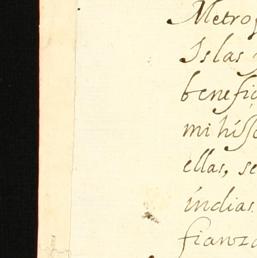 Metrop
Islas
benefic
mi hisso
ellas, se
indias.
fianza